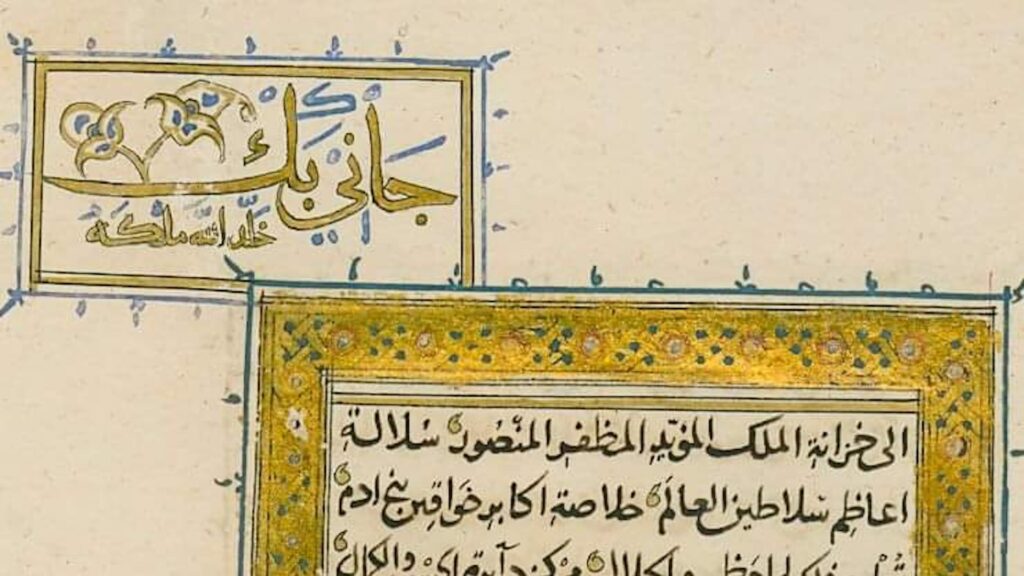 جاني بك
خلد الله ملكه
الى خزانة الملك المؤيد المظفر المنصور سلالة
اعاظم سلاطين العالم خلاصة اكابر خواقين بني ادم